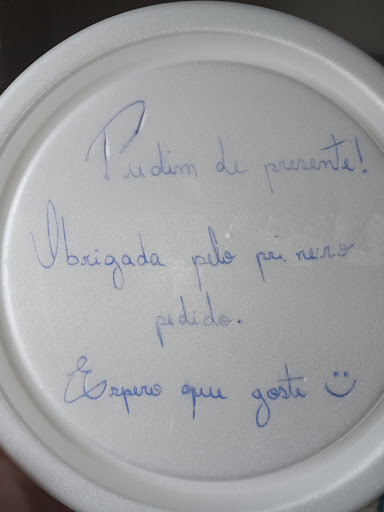 Pudim de presente!
Obrigada pelo primeiro
pedido.
Espero que goste :)